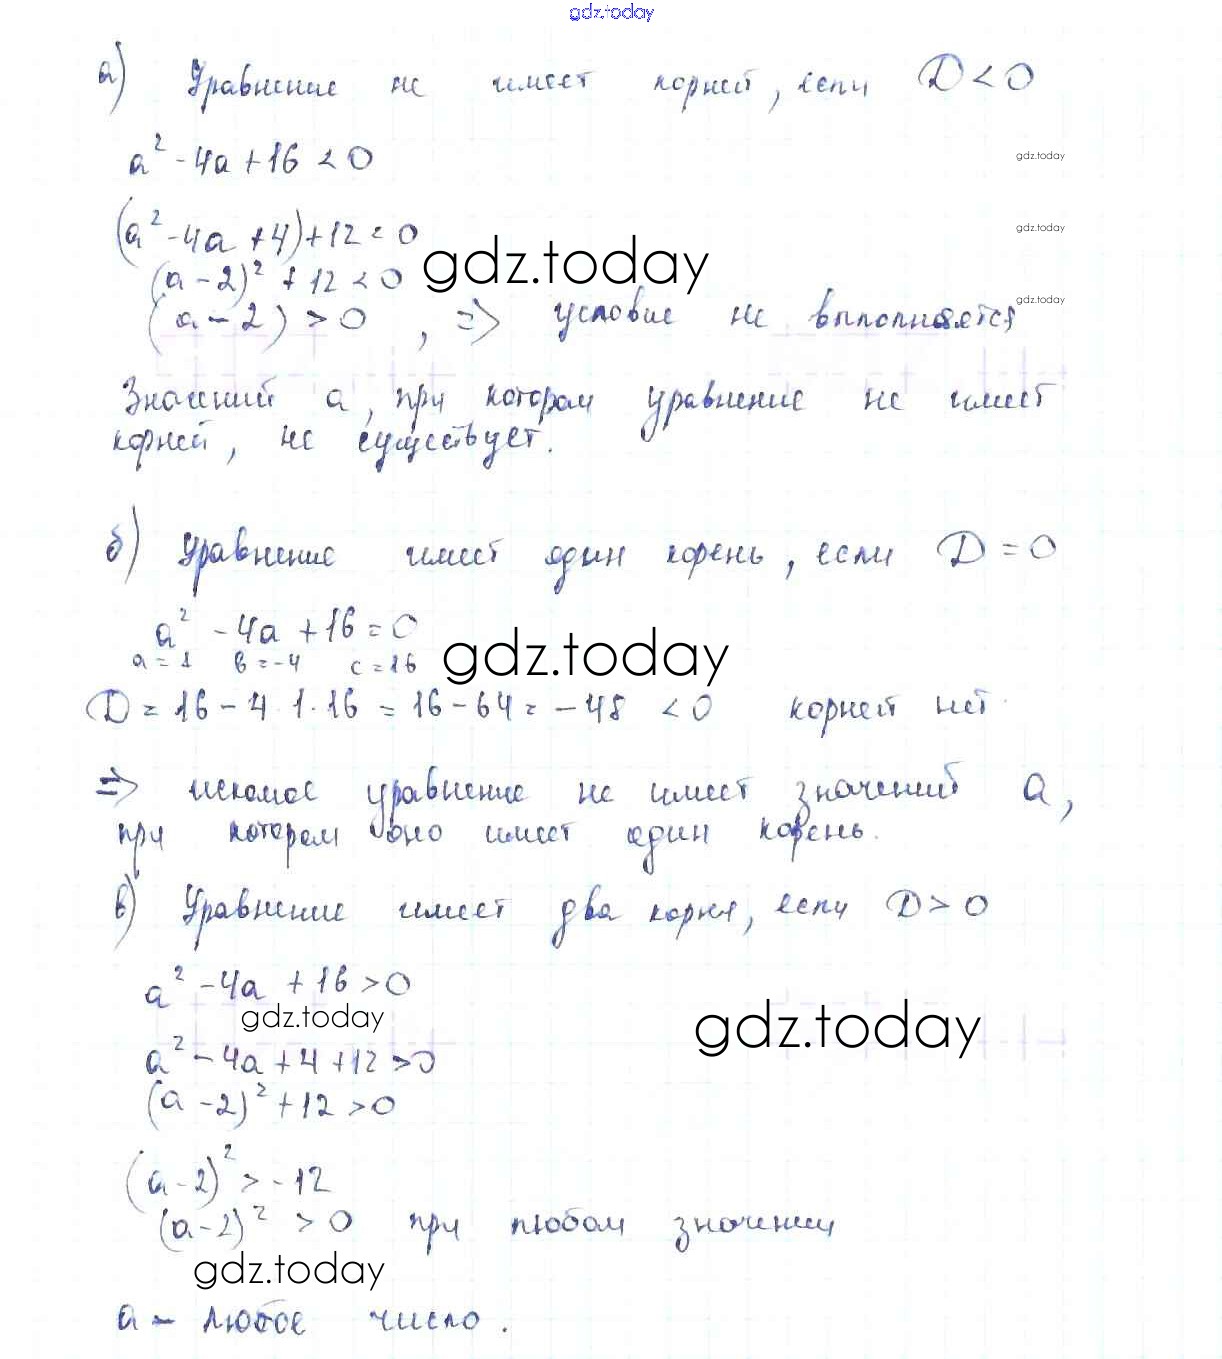 gdz.today
а) Уравнение не имеет корней, если D < 0
a² - 4a + 16 < 0
gdz.today
(a² - 4a + 4) + 12 < 0
gdz.today
(a - 2)² + 12 < 0
gdz.today
(a - 2) > 0, => условие не выполняется
gdz.today
Значений a, при котором уравнение не имеет
корней, не существует.
б) Уравнение имеет один корень, если D = 0
a² - 4a + 16 = 0
a = 1 в = -4 c = 16
gdz.today
D = 16 - 4·1·16 = 16 - 64 = -48 < 0 корней нет
=> искомое уравнение не имеет значений a,
при котором оно имеет один корень.
в) Уравнение имеет два корня, если D > 0
a² - 4a + 16 > 0
gdz.today
gdz.today
a² - 4a + 4 + 12 > 0
(a - 2)² + 12 > 0
(a - 2)² > -12
(a - 2)² > 0 при любом значении
gdz.today
a - любое число.